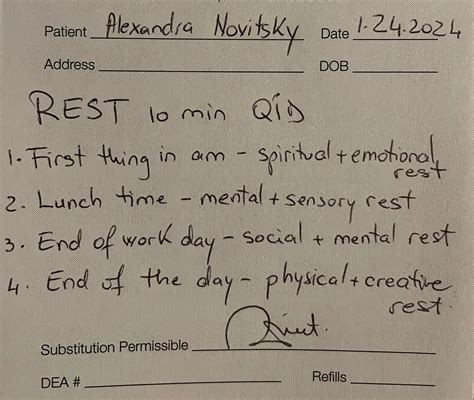 Patient Alexandra Novitsky Date 1.24.2024
Address DOB
REST 10 min QID
1. First thing in am - spiritual + emotional
rest
2. Lunch time - mental + sensory rest
3. End of work day - social + mental rest
4. End of the day - physical + creative
rest.
Substitution Permissible
DEA # Refills